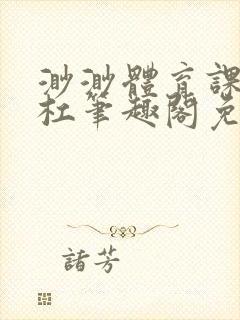 渺渺體育課
杜筆趣閣免
諸芳